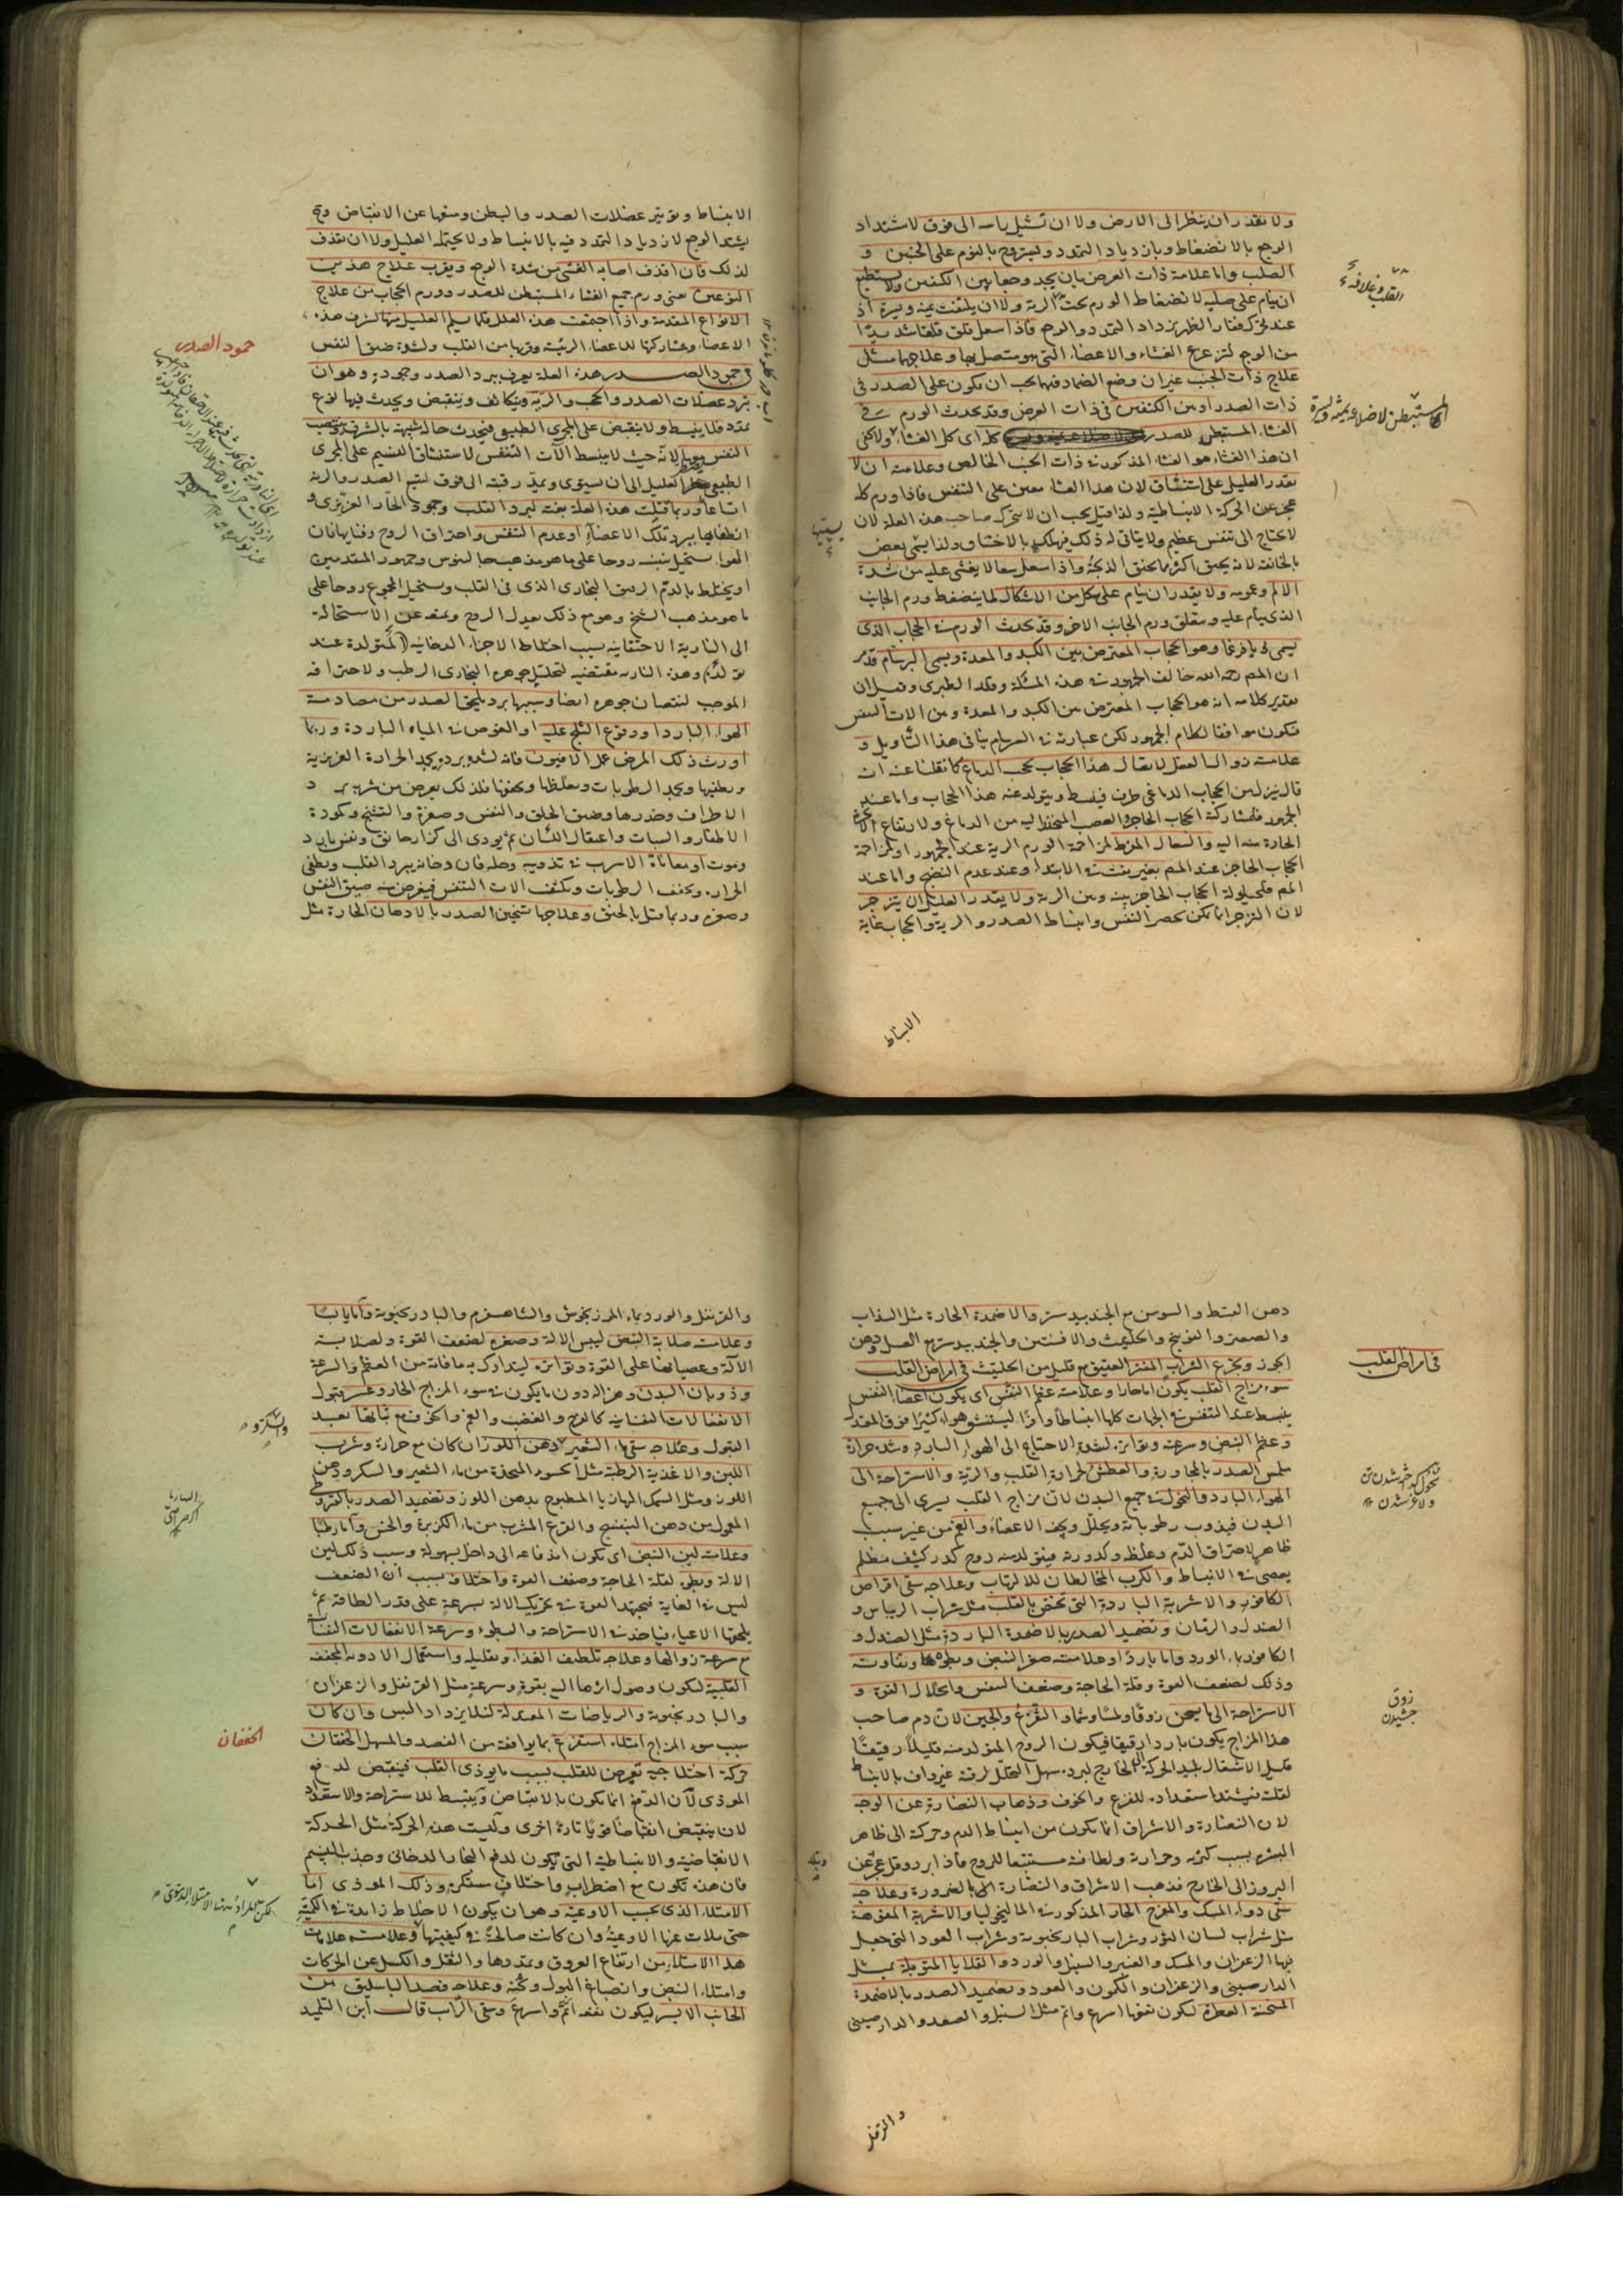 ولا يقدر ان ينظر الى الارض ولا ان تشيل راسه الى فوق لاشتداد
الوجع بالانضغاط وبازدياد التمدد ويستروح بالنوم على الجنبين و
الصلب واما علامة ذات العرض بان يجد وجعا بين الكتفين ولا يستطيع
ان ينام على صلبه لانضغاط الورم تحت الرية ولا ان يلتفت يمنة ويسرة اذ
عند تحرك فقار الظهر يزداد التمدد والوجع فاذا سعل قلق قلقا شديدا
من الوجع لتزعزع الغشاء والاعضاء التى هو متصل بها وعلاجهما مثل
علاج ذات الجنب غير ان وضع الضماد فيهما يجب ان يكون على الصدر فى
ذات الصدر او بين الكتفين فى ذات العرض وقد يحدث الورم فى
الغشاء المستبطن للصدر كله اى كل الغشاء ولا يخفى
ان هذا الغشاء هو الغشاء المذكور فى ذات الجنب الخالص وعلامته ان لا
يقدر العليل على استنشاق لان هذا الغشاء معين على التنفس فاذا ورم كله
عجز عن الحركة الانبساطية ولذا قيل يجب ان لا يتحرك صاحب هذه العلة لان
لا يحتاج الى تنفس عظيم ولا يتاتى له ذلك فيهلك بالاختناق ولذا يسمى بعض
بالخانقة لانه يخنق اكثر ما يخنق الذبحة واذا سعل سعالا يغشى عليه من شدة
الالم وعمومه ولا يقدر ان ينام على شكل من الاشكال لما ينضغط ورم الجانب
الذى ينام عليه ويتعلق ورم الجانب الاخر وقد يحدث الورم فى الحجاب الذى
يسمى ديافرغما وهو الحجاب المعترض بين الكبد والمعدة ويسمى البرسام قد مر
ان المص رحمه الله خالف الجمهور فى هذه المسئلة وقلد الطبرى وقيل ان
تقدير كلامه انه هو الحجاب المعترض بين الكبد والمعدة وبين الات التنفس
فيكون موافقا لكلام الجمهور لكن عبارته فى السرسام ينافى هذا التأويل و
علامته زوال العقل لاتصال هذا الحجاب بحجب الدماغ كما نقلنا عنه انه
قال ينزل من الحجاب الدماغى طرف فينبسط ويتولد عنه هذا الحجاب واما عند
الجمهور فلمشاركة الحجاب الحاجز والعصب المنحدر اليه من الدماغ ولارتفاع الابخرة
الحارة منه اليه والسعال المفرط لمزاحمة الورم الرية عند الجمهور او لمزاحمة
الحجاب الحاجز عند المص بغير نفث فى الابتداء وعند عدم النضج واما عند
المص فلحيلولة الحجاب الحاجز بينه وبين الرية ولا يقدر العليل ان يتزحر
لان التزحر انما يمكن بحصر النفس وانبساط الصدر والرية والحجاب غاية
الانبساط
القلب وغلافه
المستبطن لاضلاعه يمنة ويسرة
الانبساط وتوتير عضلات الصدر والبطن ومنعها عن الانقباض وح
يشتد الوجع لازدياد التمدد فيه بالانبساط ولا يحتمله العليل ولا ان يقذف
لذلك فان قذف اصابه الغشى من شدة الوجع ويقرب علاج هذين
النوعين اعنى ورم جميع الغشاء المستبطن للصدر وورم الحجاب من علاج
الانواع المتقدمة واذا اجتمعت هذه العلل قلما يسلم العليل منها لشرف هذه
الاعضاء ومشاركتها للاعضاء الرئيسة وقربها من القلب ولشدة ضيق النفس
فى جمود الصدر هذه العلة يعرف ببرد الصدر وجموده وهو ان
يبرد عضلات الصدر والحجب والرية ويتكاثف وينقبض ويحدث فيها نوع
تمدد فلا ينبسط ولا ينقبض على المجرى الطبيعى فيحدث حالة شبيهة بالشرقة
جمود الصدر
الطبيعى العليل الى ان يستوى ويمد رقبته الى فوق ليتم الصدر والرية
اتساعا وربما قتلت هذه العلة بغتة لبرد القلب وجمود الحار الغريزى و
انطفائها ببرد تلك الاعضاء او عدم التنفس واحتراق الروح وفنائها فان
الهواء يستحيل بنفسه روحا على ما هو مذهب جالينوس وجمهور المتقدمين
او يختلط بالدم الرقيق البخارى الذى فى القلب ويستحيل المجموع روحا على
ما هو مذهب الشيخ وهو مع ذلك يعدل الروح ويمنعه عن الاستحالة
الى النارية الاحتقانية بسبب اختلاط الاجزاء الدخانية المتولدة عند
تولده وهذه النارية مقتضية لتحلل جوهره البخارى الرطب ولاحتراقه
الموجب لنقصان جوهره ايضا وسببها برد يلحق الصدر من مصادمة
الهواء البارد او وقوع الثلج عليه او الغوص فى المياه الباردة وربما
اورث ذلك المرض عمل الافيون فانه لشدة برده يجمد الحرارة الغريزية
ويطفيها ويجمد الرطوبات ويغلظها ويخنقها فلذلك يعرض من شربه برد
الاطراف وخدرها وضيق الحلق والنفس وصفرة والتشنج وكمودة
الاظفار والسبات واعتقال اللسان ثم يؤدى الى كزاز خانق ونفس بارد
وموت او معاناة الاسرب فى تذويبه وحله فان دخانه يبرد القلب ويطفى
الحرارة ويكثف الرطوبات ويكثف الات التنفس فيعرض منه ضيق النفس
وصفره وربما قتل بالخنق وعلاجها تسخين الصدر بالادهان الحارة مثل
دهن القسط والسوسن مع الجندبيدستر والاضمدة الحارة مثل السذاب
والصعتر والفوتنج والحلتيت والافسنتين والجندبيدستر مع العسل ودهن
الجوز وتجرع الشراب العتيق مع قليل من الحلتيت فى امراض القلب
سوء مزاج القلب يكون اما حارا وعلامته عظم النفس اى يكون اعضاء النفس
ينبسط عند التنفس فى الجهات كلها انبساطا وافرا ليستنشق هواء كثيرا فوق المعتدل
وعظم النبض وسرعته وتواتره لشدة الاحتياج الى الهواء البارد وشدة حرارة
ملمس الصدر بالمجاورة والعطش لحرارة القلب والرية والاستراحة الى
الهواء البارد والنحول فى جميع البدن لان مزاج القلب يسرى الى جميع
البدن فيذوب رطوباته ويحلل ويجف الاعضاء والغم من غير سبب
ظاهر لاحتراق الدم وغلظه وكدورته فيتولد منه روح كدر كثيف مظلم
يعصى فى الانبساط والكرب المخالطان للالتهاب وعلاجه سقى اقراص
الكافور والاشربة الباردة التى تختص بالقلب مثل شراب الريباس و
الصندل والرمان وتضميد الصدر بالاضمدة الباردة مثل الصندل و
الكافور بماء الورد واما باردا وعلامته صغر النبض وبطؤه وتفاوته
وذلك لضعف القوة وقلة الحاجة وضعف النفس وانحلال القوة و
الاستراحة الى ما يسخن ذوقا ولمسا وشما والفزع والجبن لان دم صاحب
هذا المزاج يكون باردا رقيقا فيكون الروح المتولد منه قليلا رقيقا
قليل الاشتعال بليد الحركة الى الخارج لبرده سهل التحلل لرقته غير واف بالانبساط
لقلته فيشتد استعداده للفزع والخوف وذهاب النضارة عن الوجه
لان النضارة والاشراق انما يكون من انبساط الدم وحركته الى ظاهر
البشرة بسبب كثرته وحرارته ولطافته مستتبعا للروح فاذا برد وقل عجز عن
البروز الى الخارج فذهب الاشراق والنضارة بالضرورة وعلاجه
سقى دواء المسك والمفرح الحار المذكور فى الماليخوليا والاشربة المفرحة
مثل شراب لسان الثور وشراب البادرنجبويه وشراب العود التى جعل
فيها الزعفران والمسك والعنبر والسنبل والورد والقلايا المتوبلة بمثل
الدارصينى والزعفران والكمون والعود وتضميد الصدر بالاضمدة
المسخنة العطرة ليكون نفوذها اسرع واتم مثل السنبل والسعد والدارصينى
والقرنفل
فى امراض القلب
ذوق
چشيدن
والقرنفل والورد بماء المرزنجوش والشاهسفرم والبادرنجبويه واما يابسا
وعلامته صلابة النبض ليبس الالة وصغره لضعف القوة ولصلابة
الآلة وعصيانها على القوة وتواتره ليتدارك به ما فاته من العظم والسرعة
وذوبان البدن وهزاله دون ما يكون فى سوء المزاج الحار وعسر قبول
الانفعالات النفسانية كالفرح والغضب والغم والخوف مع ثباتها بعد
القبول وعلاجه سقى ماء الشعير ودهن اللوز ان كان مع حرارة وشرب
اللبن والاغذية الرطبة مثل الحسو المتخذة من ماء الشعير والسكر ودهن
اللوز ومثل السمك الهازبا المطبوخ بدهن اللوز وتضميد الصدر بالقيروطى
المعمول من دهن البنفسج والقرع المشرب من ماء الكزبرة والخس واما رطبا
وعلامته لين النبض اى يكون اندفاعه الى داخل بسهولة وسبب ذلك لين
الالة وبطؤه لقلة الحاجة وضعف القوة واختلافه بسبب ان الضعف
ليس فى الغاية فيجتهد القوة فى تحريك الالة بسرعة على قدر الطاقة ثم
يلحقها الاعياء فياخذ فى الاستراحة والبطوء وسرعة الانفعالات النفسانية
مع سرعة زوالها وعلاجه تلطيف الغذاء وتقليله واستعمال الادوية المجففة
القلبية ليكون وصول اثرها اليه بقوة وسرعة مثل القرنفل والزعفران
والبادرنجبويه والرياضات المعتدلة لئلا يزداد اليبس وان كان
سبب سوء المزاج امتلاء استفرغ بما يوافقه من الفصد والمسهل الخفقان
حركة اختلاجية تعرض للقلب بسبب ما يوذى القلب فينقبض لدفع
الموذى لان الدفع انما يكون بالانقباض وينبسط للاستراحة والاستعداد
لان ينقبض انقباضا قويا تارة اخرى وليست هذه الحركة مثل الحركة
الانقباضية والانبساطية التى يكون لدفع البخار الدخانى وجذب النسيم
فان هذه تكون مع اضطراب واختلاف مستكره وذلك الموذى اما
الامتلاء الذى بحسب الاوعية وهو ان يكون الاخلاط زائدة فى الكمية
حتى ملات عنها الاوعية وان كانت صالحة فى كيفيتها وعلامته علامات
هذا الامتلاء من ارتفاع العروق وتمددها والثقل والكسل عن الحركات
وامتلاء النبض وانصباغ البول وثخنه وعلاجه فصد الباسليق من
الجانب الايسر ليكون نفعه اتم واسرع وسقى الراب قال ابن التلميذ
والسكر
الخفقان